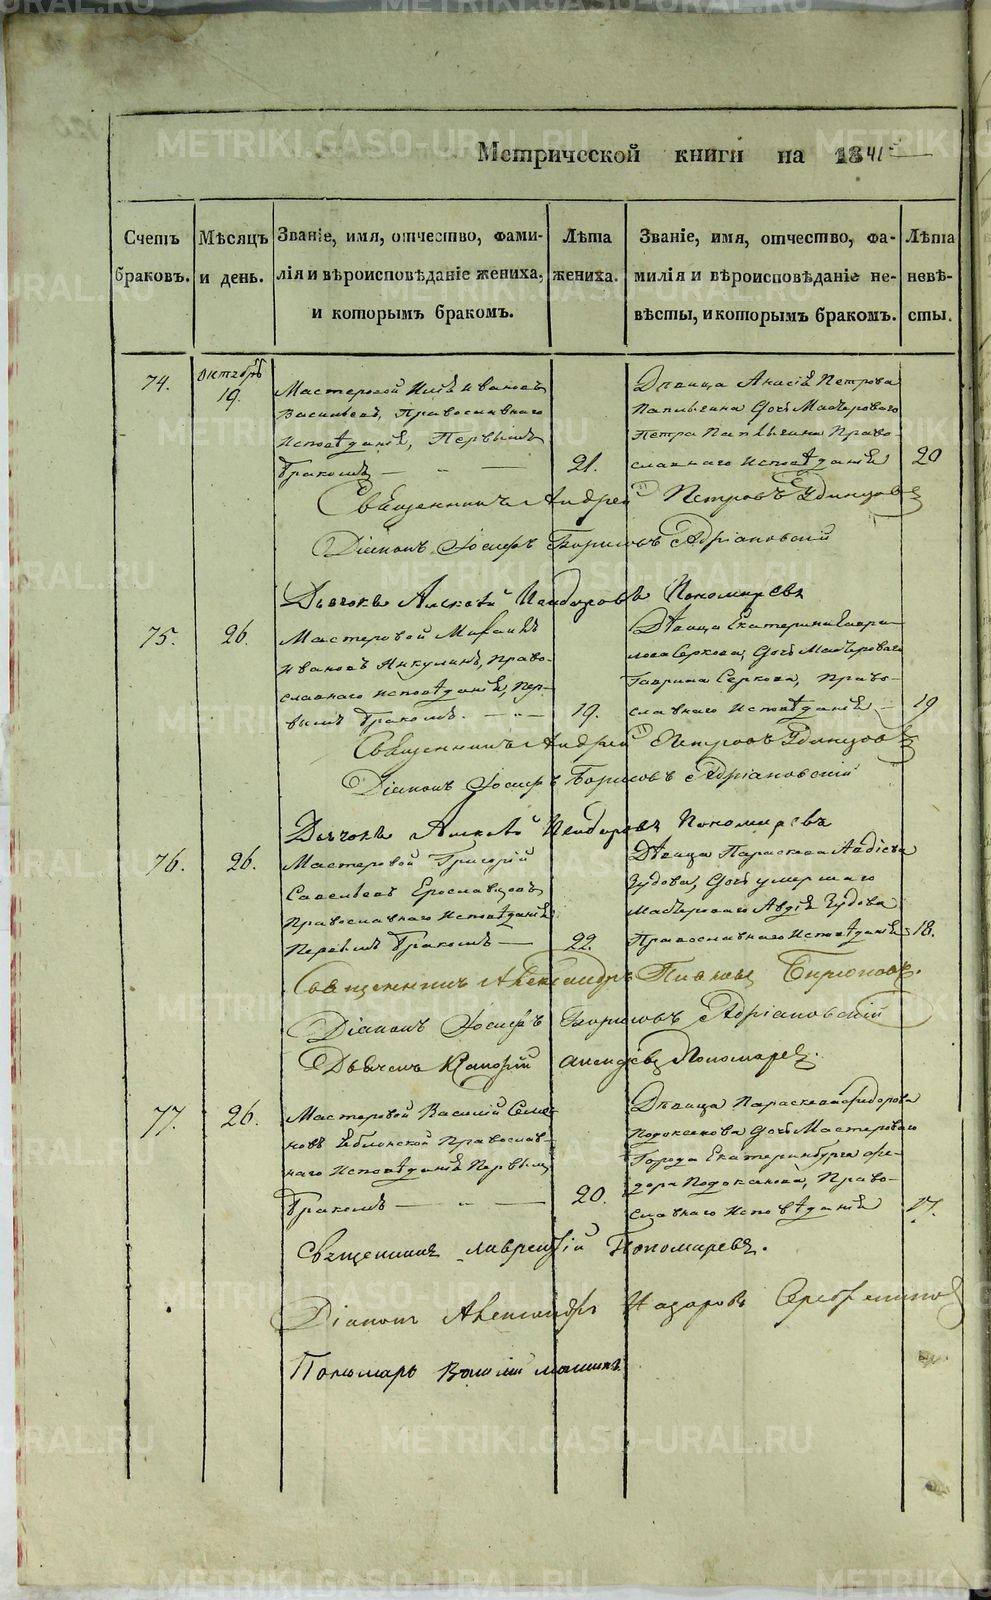 METRIKI.GASO-URAL.RU
Метрической книги на 1841й
Счетъ браковъ.
Мѣсяцъ и день.
Званіе, имя, отчество, фами-
лія и вѣроисповѣданіе жениха,
и которымъ бракомъ.
Лѣта жениха.
Званіе, имя, отчество, фа-
милія и вѣроисповѣданіе не-
вѣсты, и которымъ бракомъ.
Лѣта невѣ-
сты.
74.
Октября
19.
Мастеровой Илія Ивановъ
Васильевъ, Православнаго
Исповѣданія, Первымъ
бракомъ
21.
Дѣвица Анисія Петрова
дочь Мастероваго
Петра Право-
славнаго Исповѣданія
20
Священникъ Андрей Петровъ Удинцовъ
Діаконъ Іосифъ Борисовъ Адріановскій
Дьячокъ Алексѣй Пономаревъ
75.
26.
Мастеровой Михаилъ
Ивановъ Акулинъ, Право-
славнаго исповѣданія, Пер-
вымъ бракомъ.
19.
Дѣвица Екатерина Гаври-
лова Серкова, дочь Мастероваго
Гаврила Серкова, Право-
славнаго Исповѣданія
19
Священникъ Андрей Петровъ Удинцовъ
Діаконъ Іосифъ Борисовъ Адріановскій
Дьячокъ Алексѣй Пономаревъ
76.
26.
Мастеровой Григорій
Савельевъ Ерославцовъ
Православнаго Исповѣданія
Первымъ бракомъ
22.
Дѣвица Параскева Авдіева
Чудова, дочь умершаго
Мастероваго Авдія Чудова
Православнаго Исповѣданія
18.
Священникъ Александръ Павловъ Бирюковъ.
Діаконъ Іосифъ Борисовъ Адріановскій
Дьячекъ Пономаревъ.
77.
26.
Мастеровой Василій Семе-
новъ Яблонской Православ-
наго Исповѣданія Первымъ
бракомъ
20.
Дѣвица Параскева Федорова
Подоксенова дочь Мастероваго
Города Екатеринбурга Фе-
дора Подоксенова, Право-
славнаго Исповѣданія
17.
Священникъ Лаврентій Пономаревъ.
Діаконъ Александръ Назаровъ Серебренниковъ
Пономарь Василій